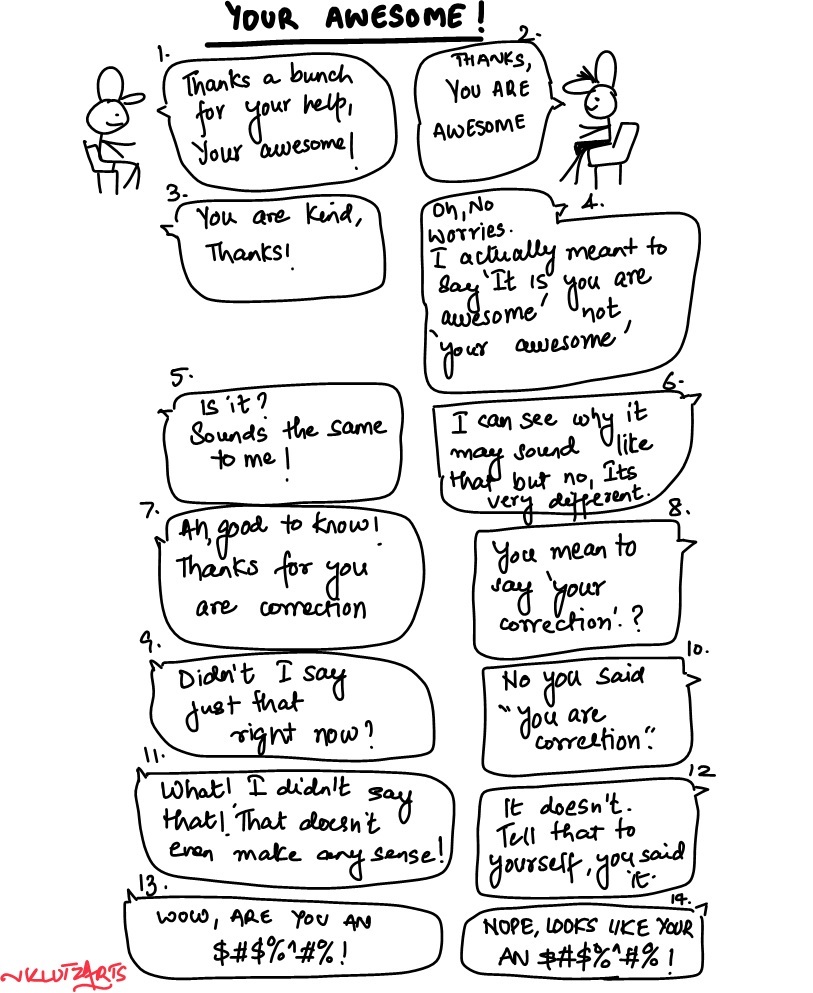 YOUR AWESOME!
1.
Thanks a bunch
for your help,
Your awesome!
2.
THANKS,
YOU ARE
AWESOME
3.
You are kind,
Thanks!
4.
Oh, No
worries.
I actually meant to
say 'It is you are
awesome' not
'your awesome'
5.
Is it?
Sounds the same
to me!
6.
I can see why it
may sound like
that but no, Its
very different.
7.
Ah, good to know!
Thanks for you
are correction
8.
You mean to
say 'your
correction'.?
9.
Didn't I say
just that
right now?
10.
No you said
"you are
correction".
11.
What! I didn't say
that! That doesn't
even make any sense!
12
It doesn't.
Tell that to
yourself, you said
it.
13.
WOW, ARE YOU AN
$#$%^#%!
14.
NOPE, LOOKS LIKE YOUR
AN $#$%^#%!
KLUTZARTS